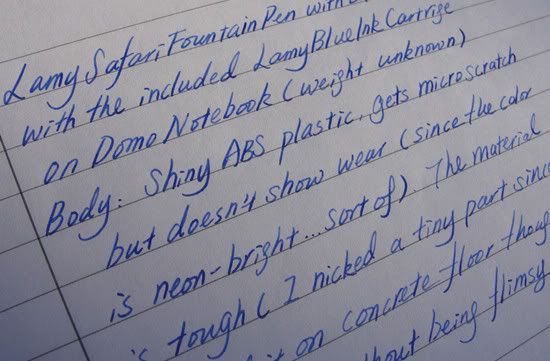 Lamy Safari Fountain Pen with
with the included Lamy Blue Ink Cartrige
on Domo Notebook (weight unknown)
Body: Shiny ABS plastic, gets microscratch
but doesn't show wear (since the color
is neon-bright...sort of). The material
is tough (I nicked a tiny part since
it on concrete floor thoug
out being flimsy